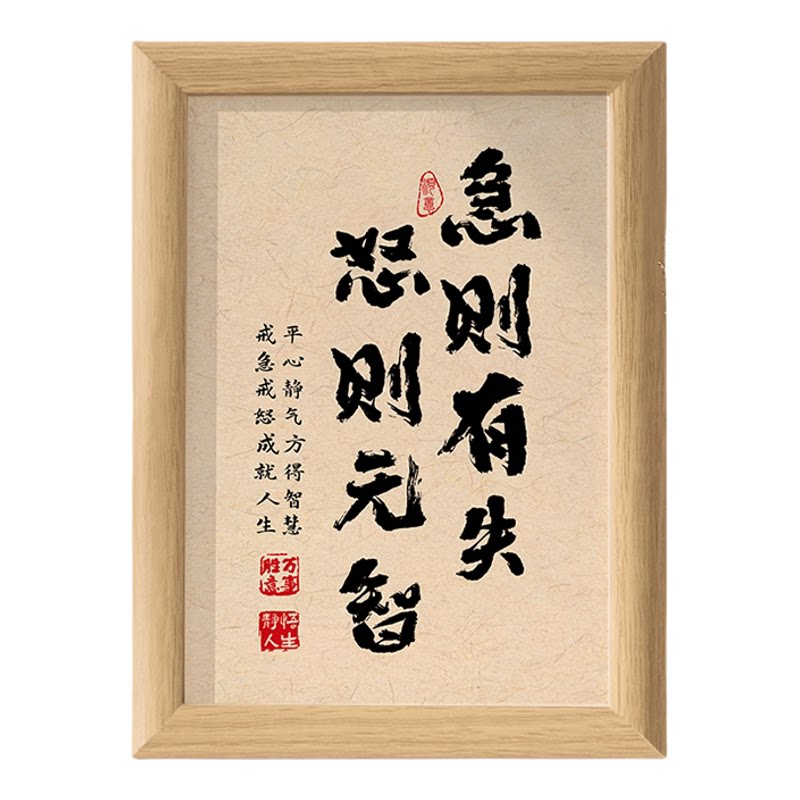 急则有失
怒则元智
平心静气方得智慧
戒急戒怒成就人生
万事胜意
静悟人生